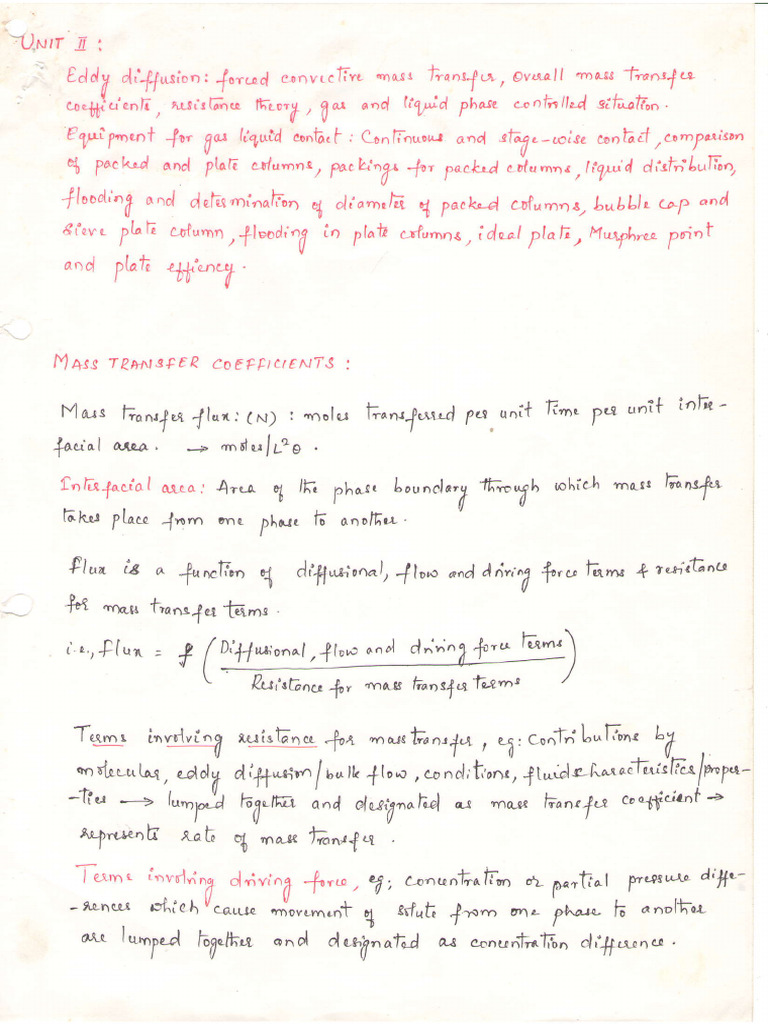 UNIT II :
Eddy diffusion : forced convective mass transfer, overall mass transfer
coefficients, resistance theory, gas and liquid phase controlled situation.
Equipment for gas liquid contact : Continuous and stage-wise contact, comparison
of packed and plate columns, packings for packed columns, liquid distribution,
flooding and determination of diameter of packed columns, bubble cap and
sieve plate column, flooding in plate columns, ideal plate, Murphree point
and plate effiency.
MASS TRANSFER COEFFICIENTS :
Mass transfer flux : (N) : moles transferred per unit time per unit inter-
facial area. → moles/L²θ .
Interfacial area : Area of the phase boundary through which mass transfer
takes place from one phase to another.
Flux is a function of diffusional, flow and driving force terms & resistance
for mass transfer terms.
i.e., flux = f ( Diffusional, flow and driving force terms
Resistance for mass transfer terms )
Terms involving resistance for mass transfer, eg: Contributions by
molecular, eddy diffusion/bulk flow, conditions, fluid characteristics/proper-
-ties → lumped together and designated as mass transfer coefficient →
represents rate of mass transfer.
Terms involving driving force, eg; concentration or partial pressure diffe-
-rences which cause movement of solute from one phase to another
are lumped together and designated as concentration difference.